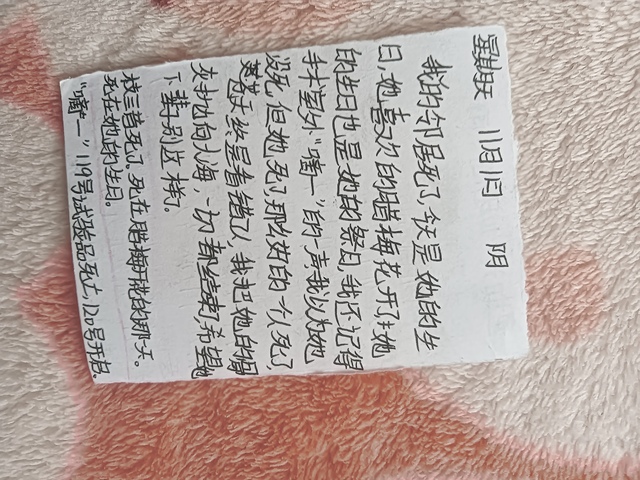 星期天 11月1日 阴
我的邻居死了,今天是她的生
日,她喜欢的腊梅花开了,她
的生日也是她的祭日,我还记得
手术室外“嘀一”的一声我以为她
没死,但她死了,那么好的一个人死了
天终是看错了,我把她的骨
灰抛向大海,一切都结束了,希望她
下辈别这样了。
死了。死在腊梅开花的那天。
死在她的生日。
“嘀一”119号试验品死亡,120号开启.